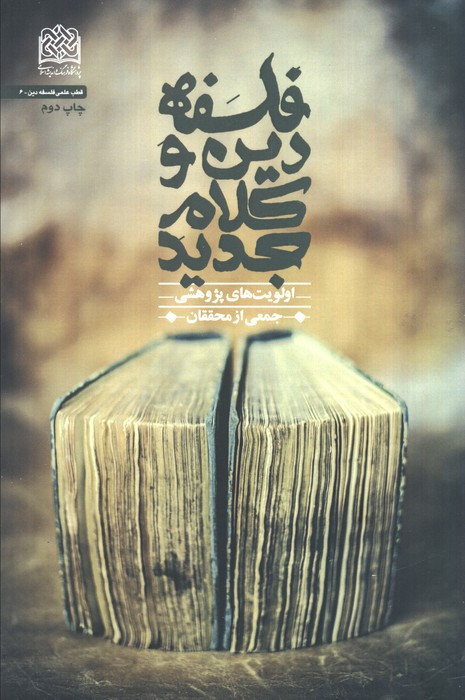 پژوهشگاه فرهنگ و اندیشه اسلامی
قطب علمی فلسفه دین - ۶
چاپ دوم
فلسفه
دین و
کلام
جدید
اولویت‌های پژوهشی
جمعی از محققان